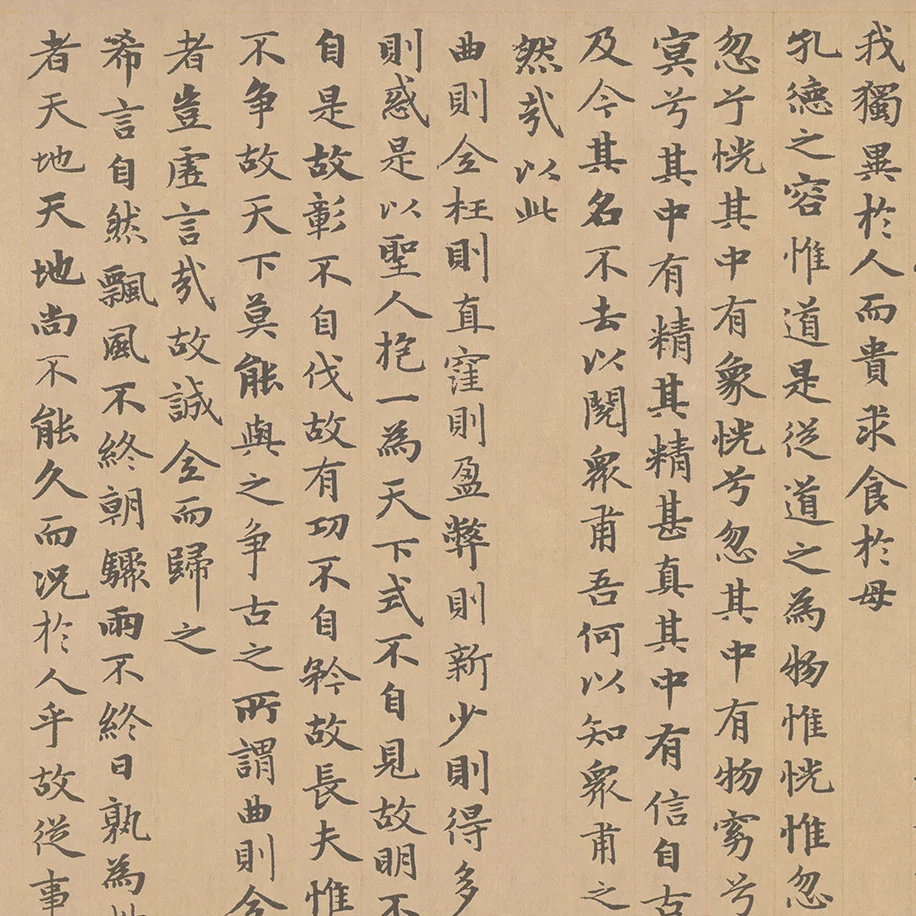 我獨異於人而貴求食於母
孔德之容惟道是從道之為物惟恍惟忽
忽兮恍其中有象恍兮忽其中有物窈兮
冥兮其中有精其精甚真其中有信自古
及今其名不去以閱衆甫吾何以知衆甫之
然哉以此
曲則全枉則直窪則盈弊則新少則得多
則惑是以聖人抱一為天下式不自見故明不
自是故彰不自伐故有功不自矜故長夫惟
不争故天下莫能與之争古之所謂曲則全
者豈虛言哉故誠全而歸之
希言自然飄風不終朝驟雨不終日孰為此
者天地天地尚不能久而況於人乎故從事